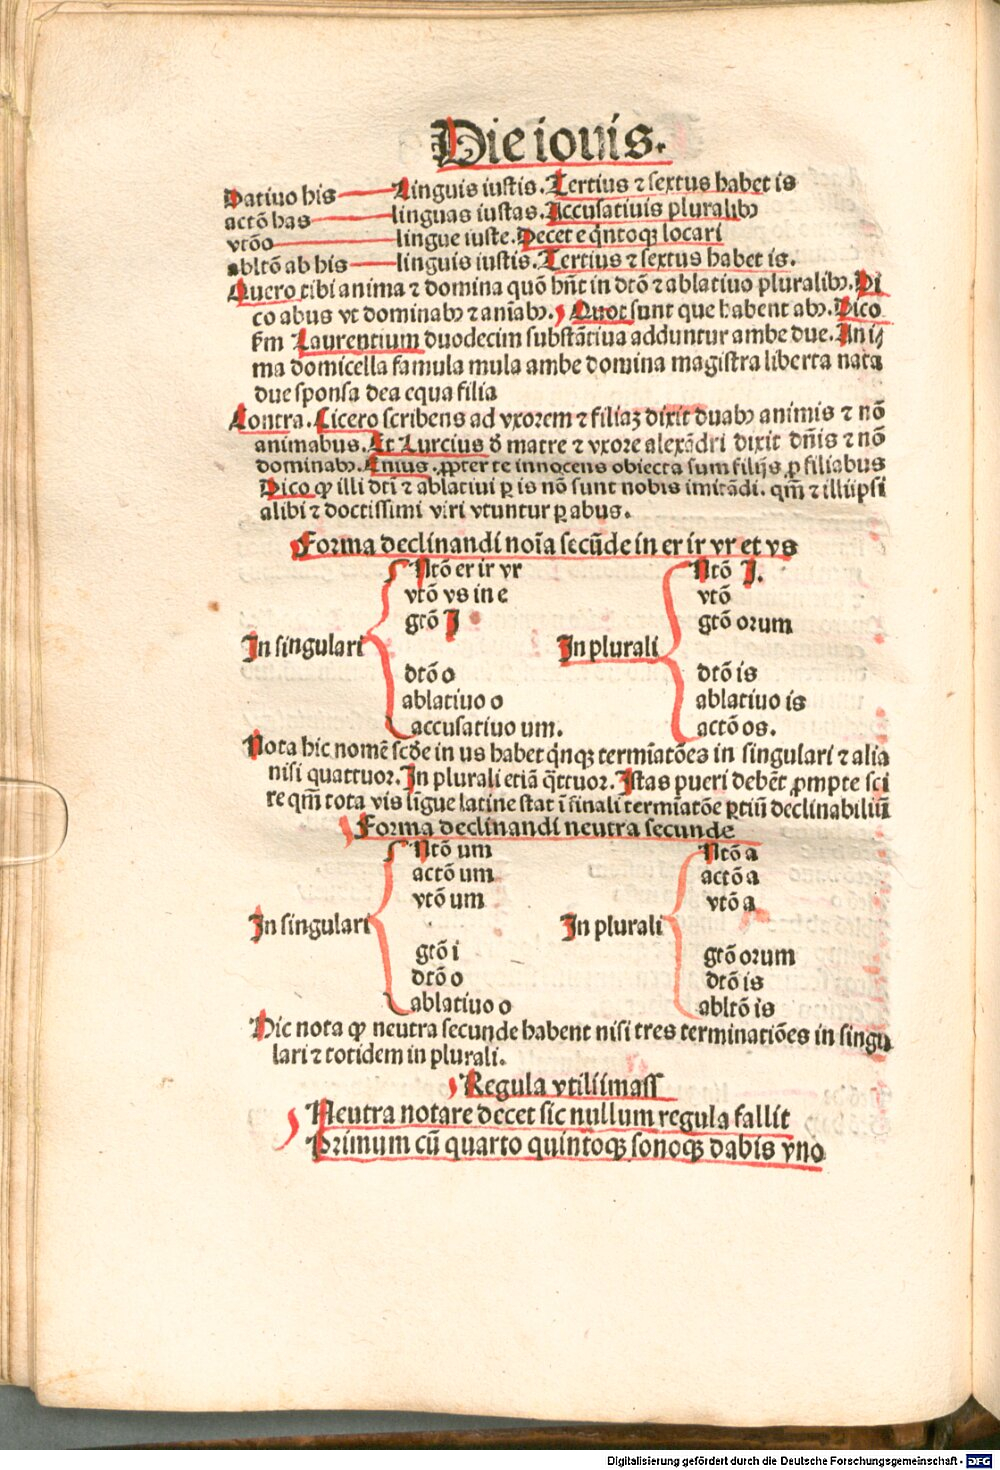 Die iouis.
Datiuo his linguis iustis. Tertius ⁊ sextus habet is
actō has linguas iustas. Accusatiuis pluralibꝫ
vtōo lingue iuste. Decet e q̇ntoqꝫ locari
abltō ab his linguis iustis. Tertius ⁊ sextus habet is.
Quero tibi anima ⁊ domina quō hn̄t in dtō ⁊ ablatiuo pluralibꝫ. Di
co abus vt dominabꝫ ⁊ aniābꝫ. Quot sunt que habent abꝫ. Dico
km̄ Laurentium duodecim substātiua adduntur ambe due. Ani
ma domicella famula mula ambe domina magistra liberta nata
due sponsa dea equa filia
Contra. Cicero scribens ad vxorem ⁊ filiaꝫ dixit duabꝫ animis ⁊ nō
animabus. Et Curcius ō matre ⁊ vxore alexādri dixit dn̄is ⁊ nō
dominabꝫ. Enius. ꝓpter te innocens obiecta sum filijs ꝓ filiabus
Dico ꝙ illi dti ⁊ ablatiui ꝑ is nō sunt nobis imitādi. qm̄ ⁊ illiipsi
alibi ⁊ doctissimi viri vtuntur ꝑ abus.
Forma declinandi noīa secūde in er ir vr et vs
Ntō er ir vr Ntō I.
vtō vs in e vtō
gtō I gtō orum
In singulari In plurali
dtō o dtō is
ablatiuo o ablatiuo is
accusatiuo um. actō os.
Nota hic nomē scd̄e in us habet q̇nqꝫ termīatōes in singulari ⁊ alia
nisi quattuor. In plurali etiā q̄ttuor. Istas pueri debēt ꝓmpte sci
re qm̄ tota vis līgue latine stat ī finali termīatōe ꝑtiū declinabiliū
Forma declinandi neutra secunde
Ntō um Ntō a
actō um actō a
vtō um vtō a
In singulari In plurali
gtō i gtō orum
dtō o dtō is
ablatiuo o abltō is
Hic nota ꝙ neutra secunde habent nisi tres terminatiōes in singu
lari ⁊ totidem in plurali.
Regula vtiliimass
Neutra notare decet sic nullum regula fallit
Primum cū quarto quintoqꝫ sonoqꝫ dabis vno
Digitalisierung gefördert durch die Deutsche Forschungsgemeinschaft - DFG